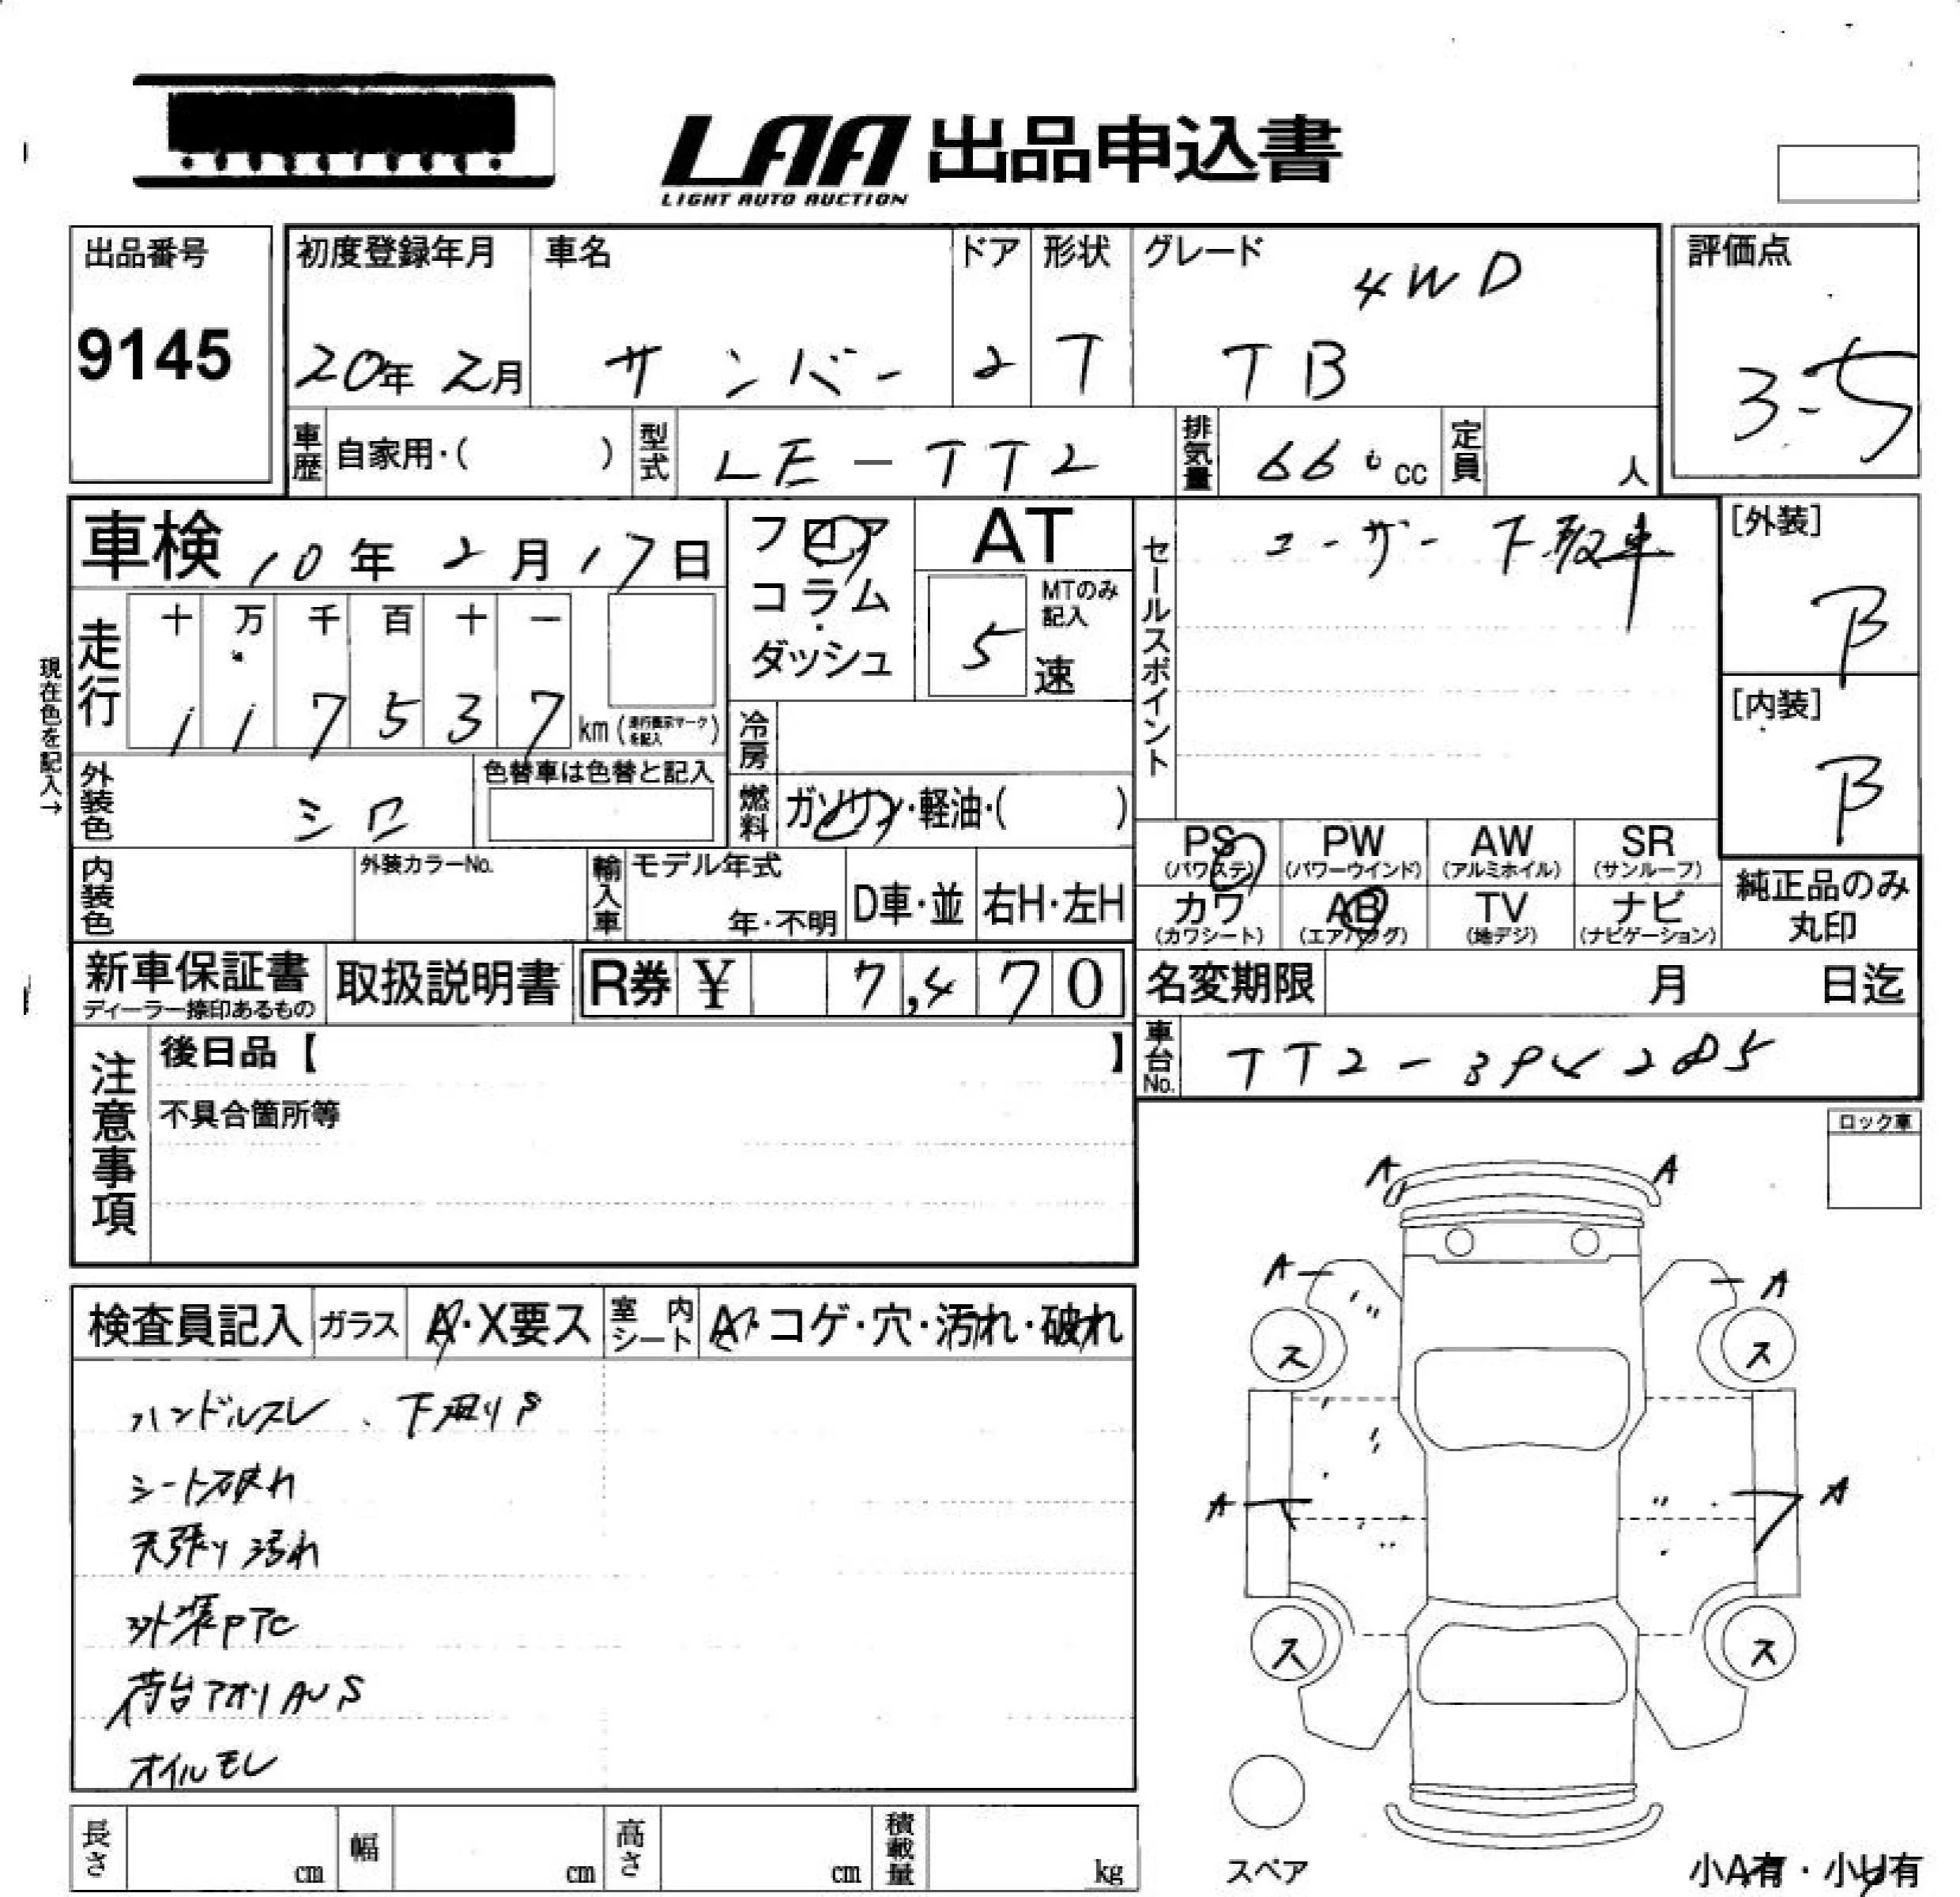 LAA 出品申込書
LIGHT AUTO AUCTION
出品番号
9145
初度登録年月
20年 2月
車名
サンバー
ドア
2
形状
T
グレード
4WD
TB
評価点
3-5
車歴 自家用・( )
型式 LE-TT2
排気量 660cc
定員 人
車検 10年 2月 17日
フロア
コラム
ダッシュ
AT
MTのみ記入
5速
セールスポイント
ユーザー下取車
[外装]
B
[内装]
B
現在色を記入→
走行
十 万 千 百 十 一
1 1 7 5 3 7 km (走行表示マークを記入)
冷房
外装色 シロ
色替車は色替と記入
燃料 ガソリン・軽油・( )
PS (パワステ)
PW (パワーウインド)
AW (アルミホイル)
SR (サンルーフ)
カワ (カワシート)
AB (エアバッグ)
TV (地デジ)
ナビ (ナビゲーション)
純正品のみ
丸印
内装色
外装カラーNo.
輸入車
モデル年式
年・不明
D車・並
右H・左H
新車保証書
ディーラー捺印あるもの
取扱説明書
R券 ¥ 7,470
名変期限 月 日迄
車台No. TT2-394285
注意事項
後日品【 】
不具合箇所等
ロック車
検査員記入
ガラス A・X要ス
室内シート A・コゲ・穴・汚れ・破れ
ハンドルスレ、下廻りS
シート破れ
天張り汚れ
外装PTC
荷台アオリAUS
オイルモレ
A A
A A
ス ス
A A
ス ス
スペア
小A有・小U有
長さ cm
幅 cm
高さ cm
積載量 kg